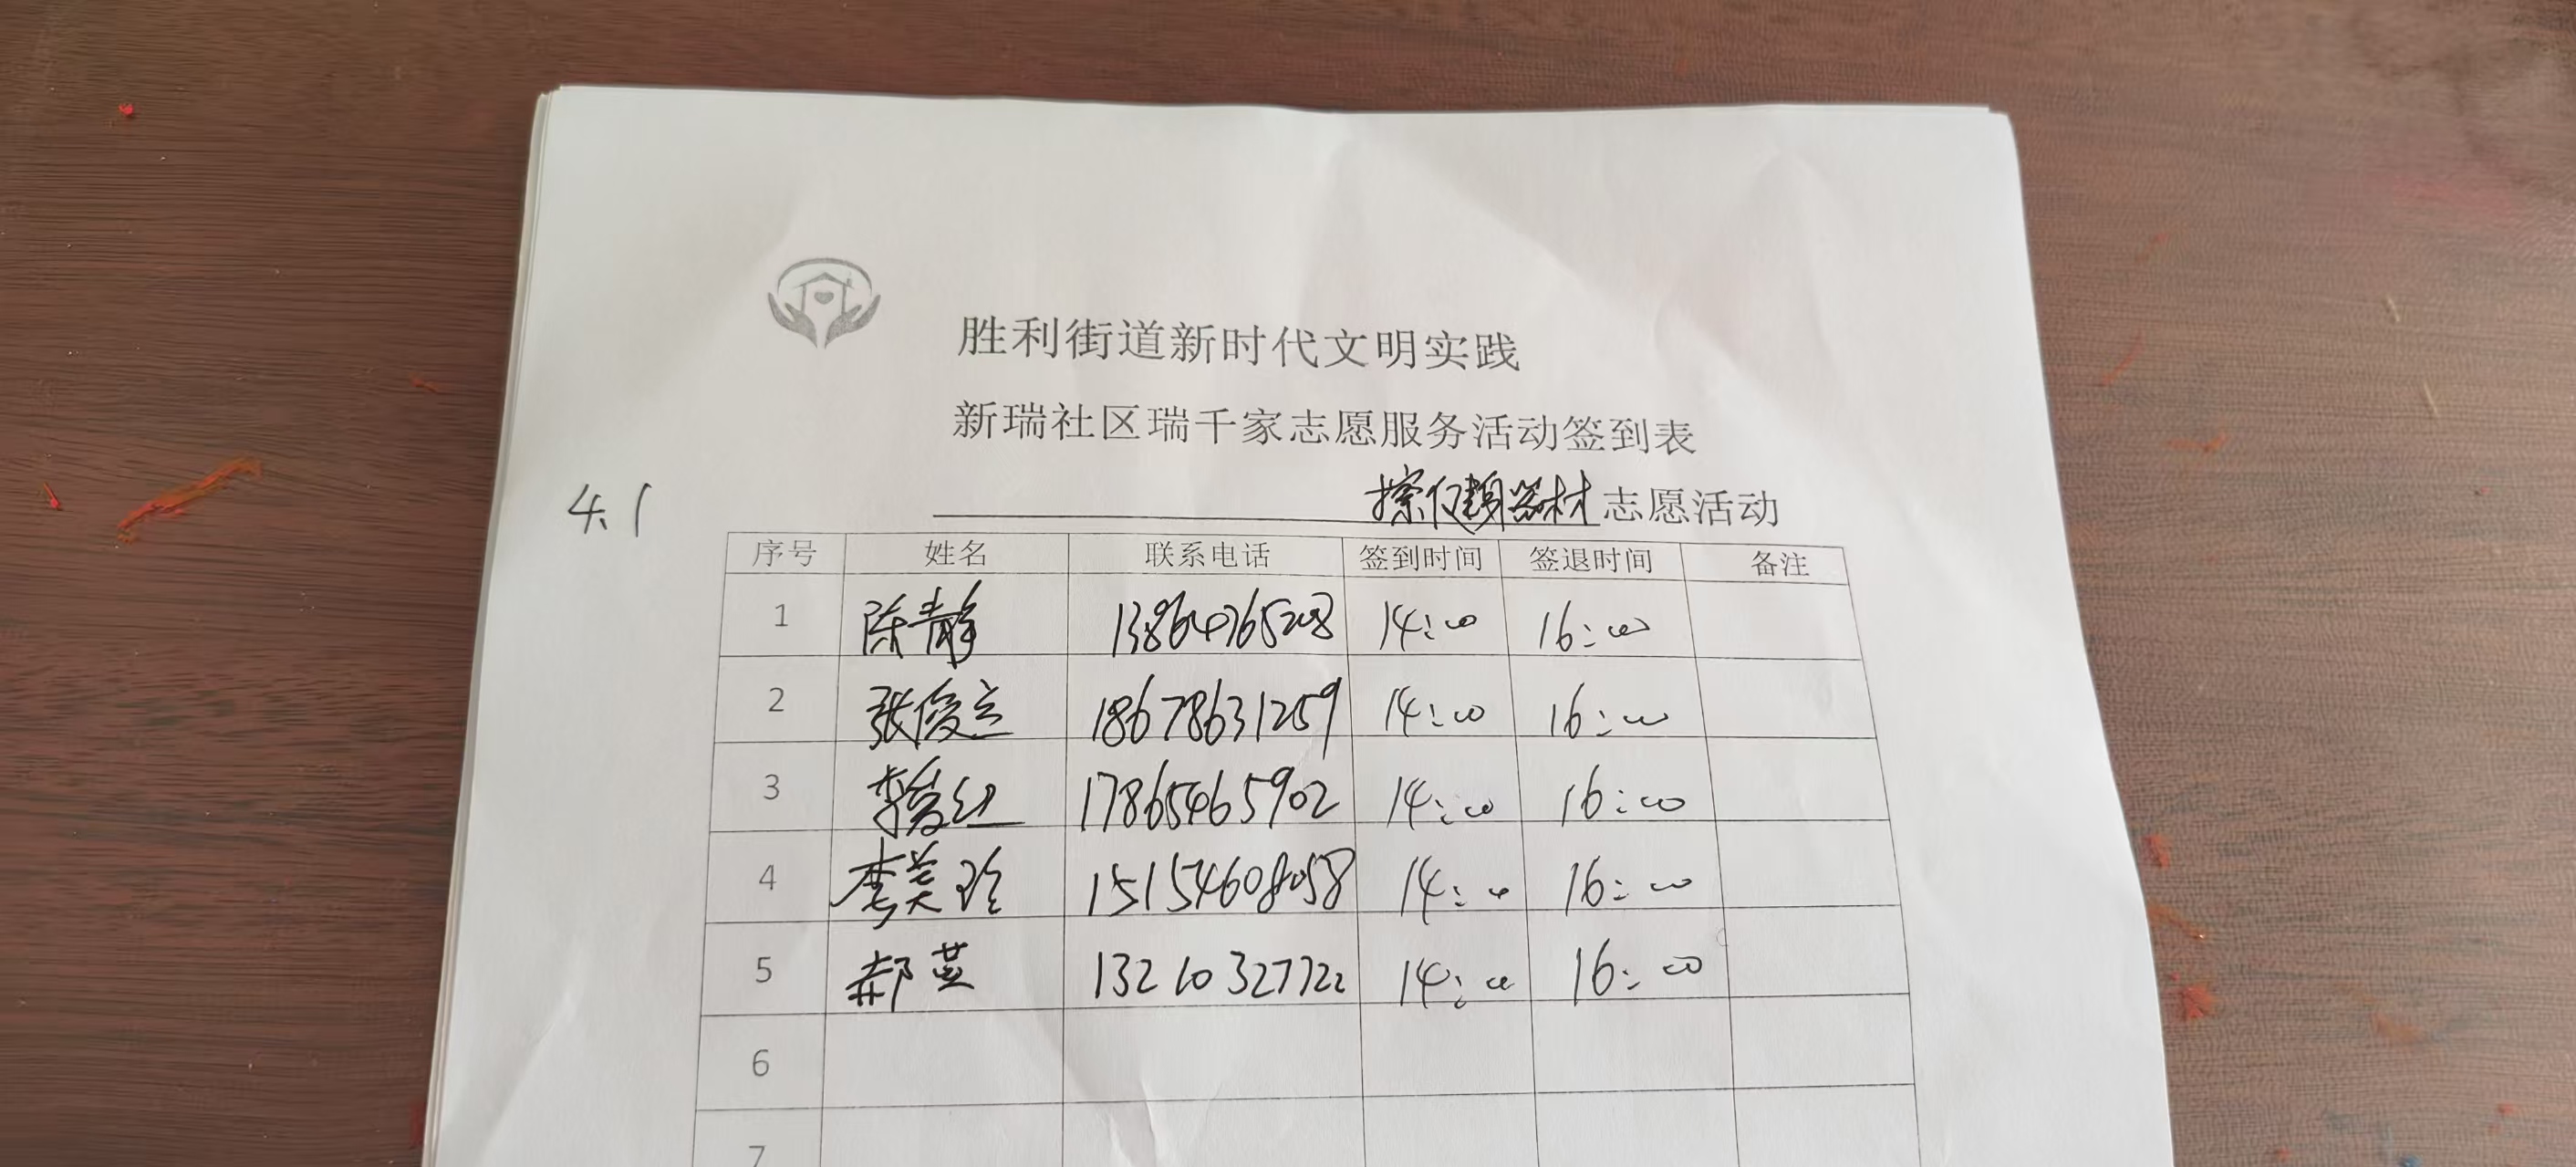 胜利街道新时代文明实践
新瑞社区瑞千家志愿服务活动签到表
4.1
擦健身器材志愿活动
序号 姓名 联系电话 签到时间 签退时间 备注
1 陈静 13864765208 14:00 16:00
2 张俊立 18678631259 14:00 16:00
3 李爱红 17865465902 14:00 16:00
4 李美玲 15154608058 14:00 16:00
5 郝英 13210327722 14:00 16:00
6
7